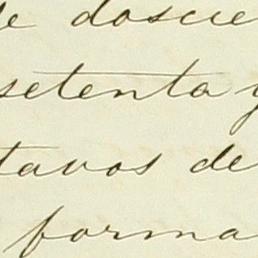 de doscie
setenta y
tavos de
forma